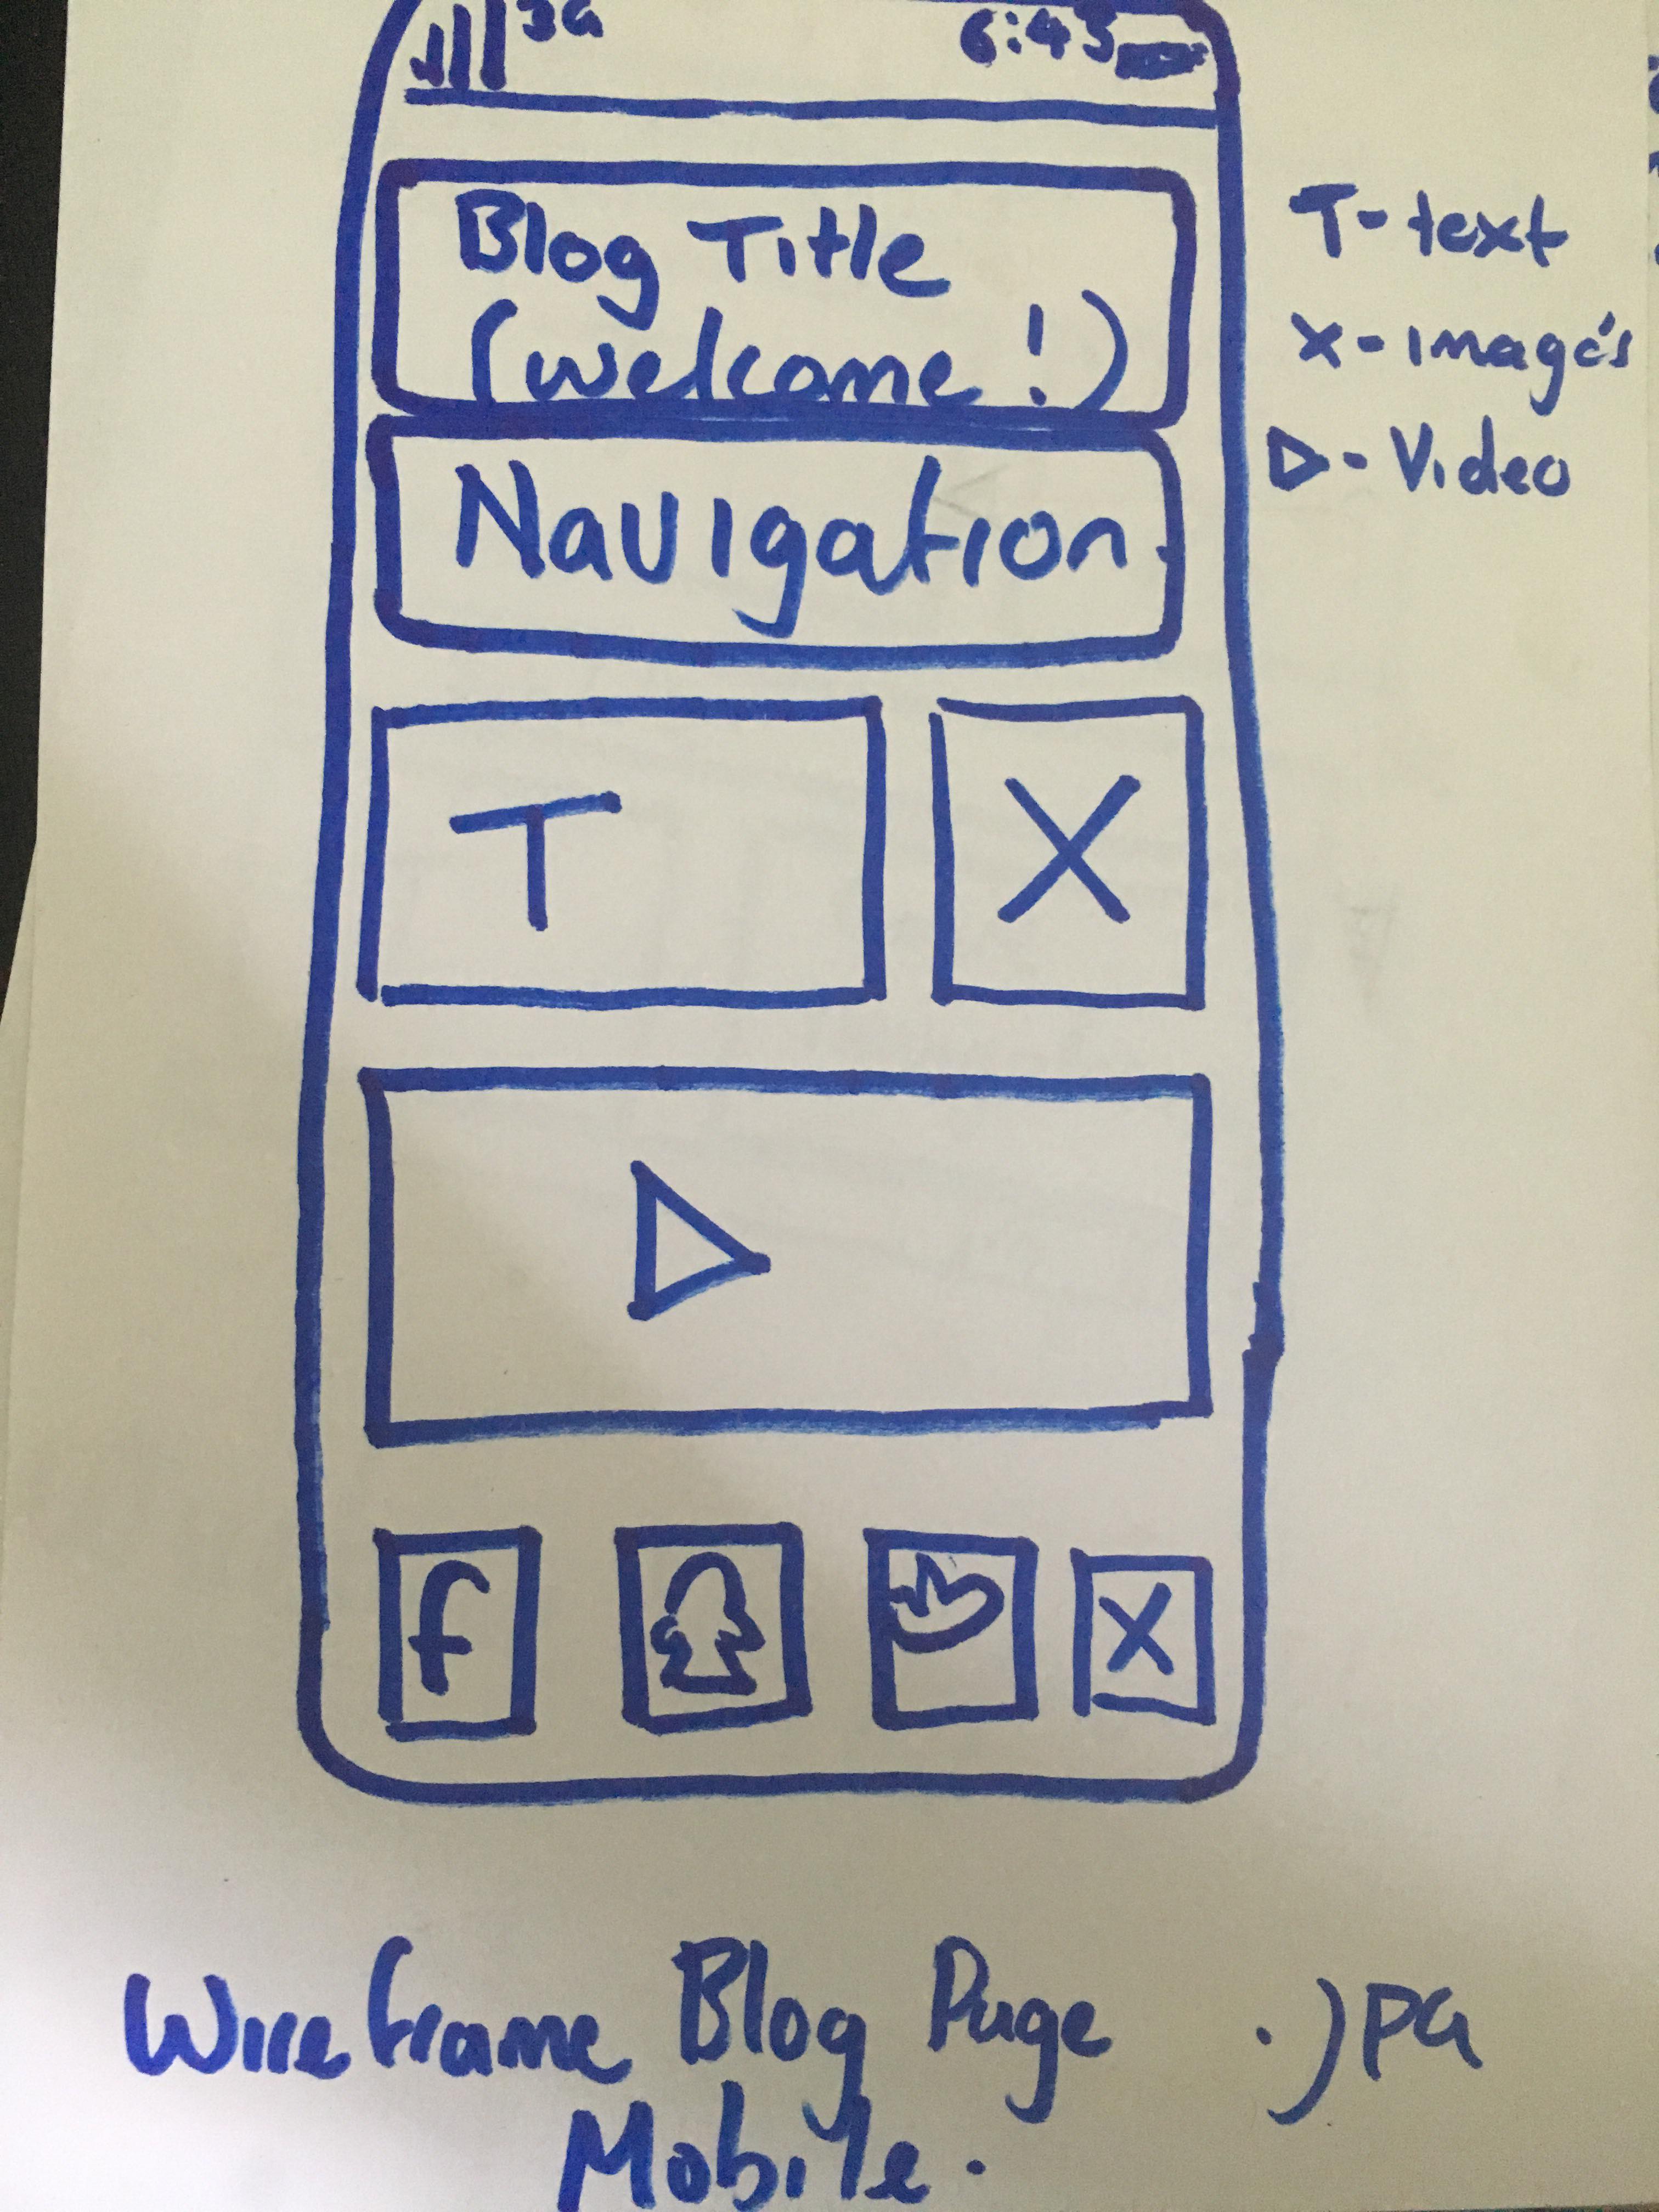 3G 6:45
Blog Title
(welcome!)
Navigation
T X
f X
T - text
X - image's
▷ - Video
Wireframe Blog Page .jpg
Mobile.